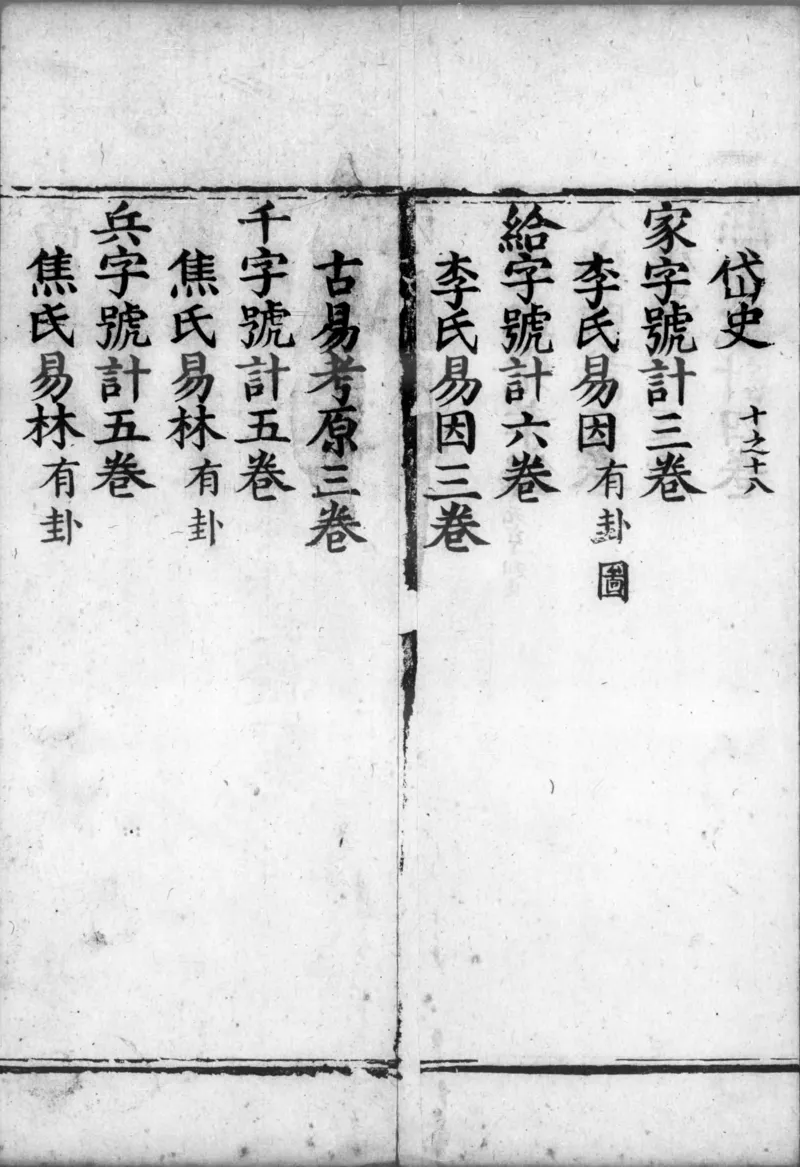 岱史 十之十八
家字號計三卷
李氏易因有卦圖
給字號計六卷
李氏易因三卷
古易考原三卷
千字號計五卷
焦氏易林有卦
兵字號計五卷
焦氏易林有卦